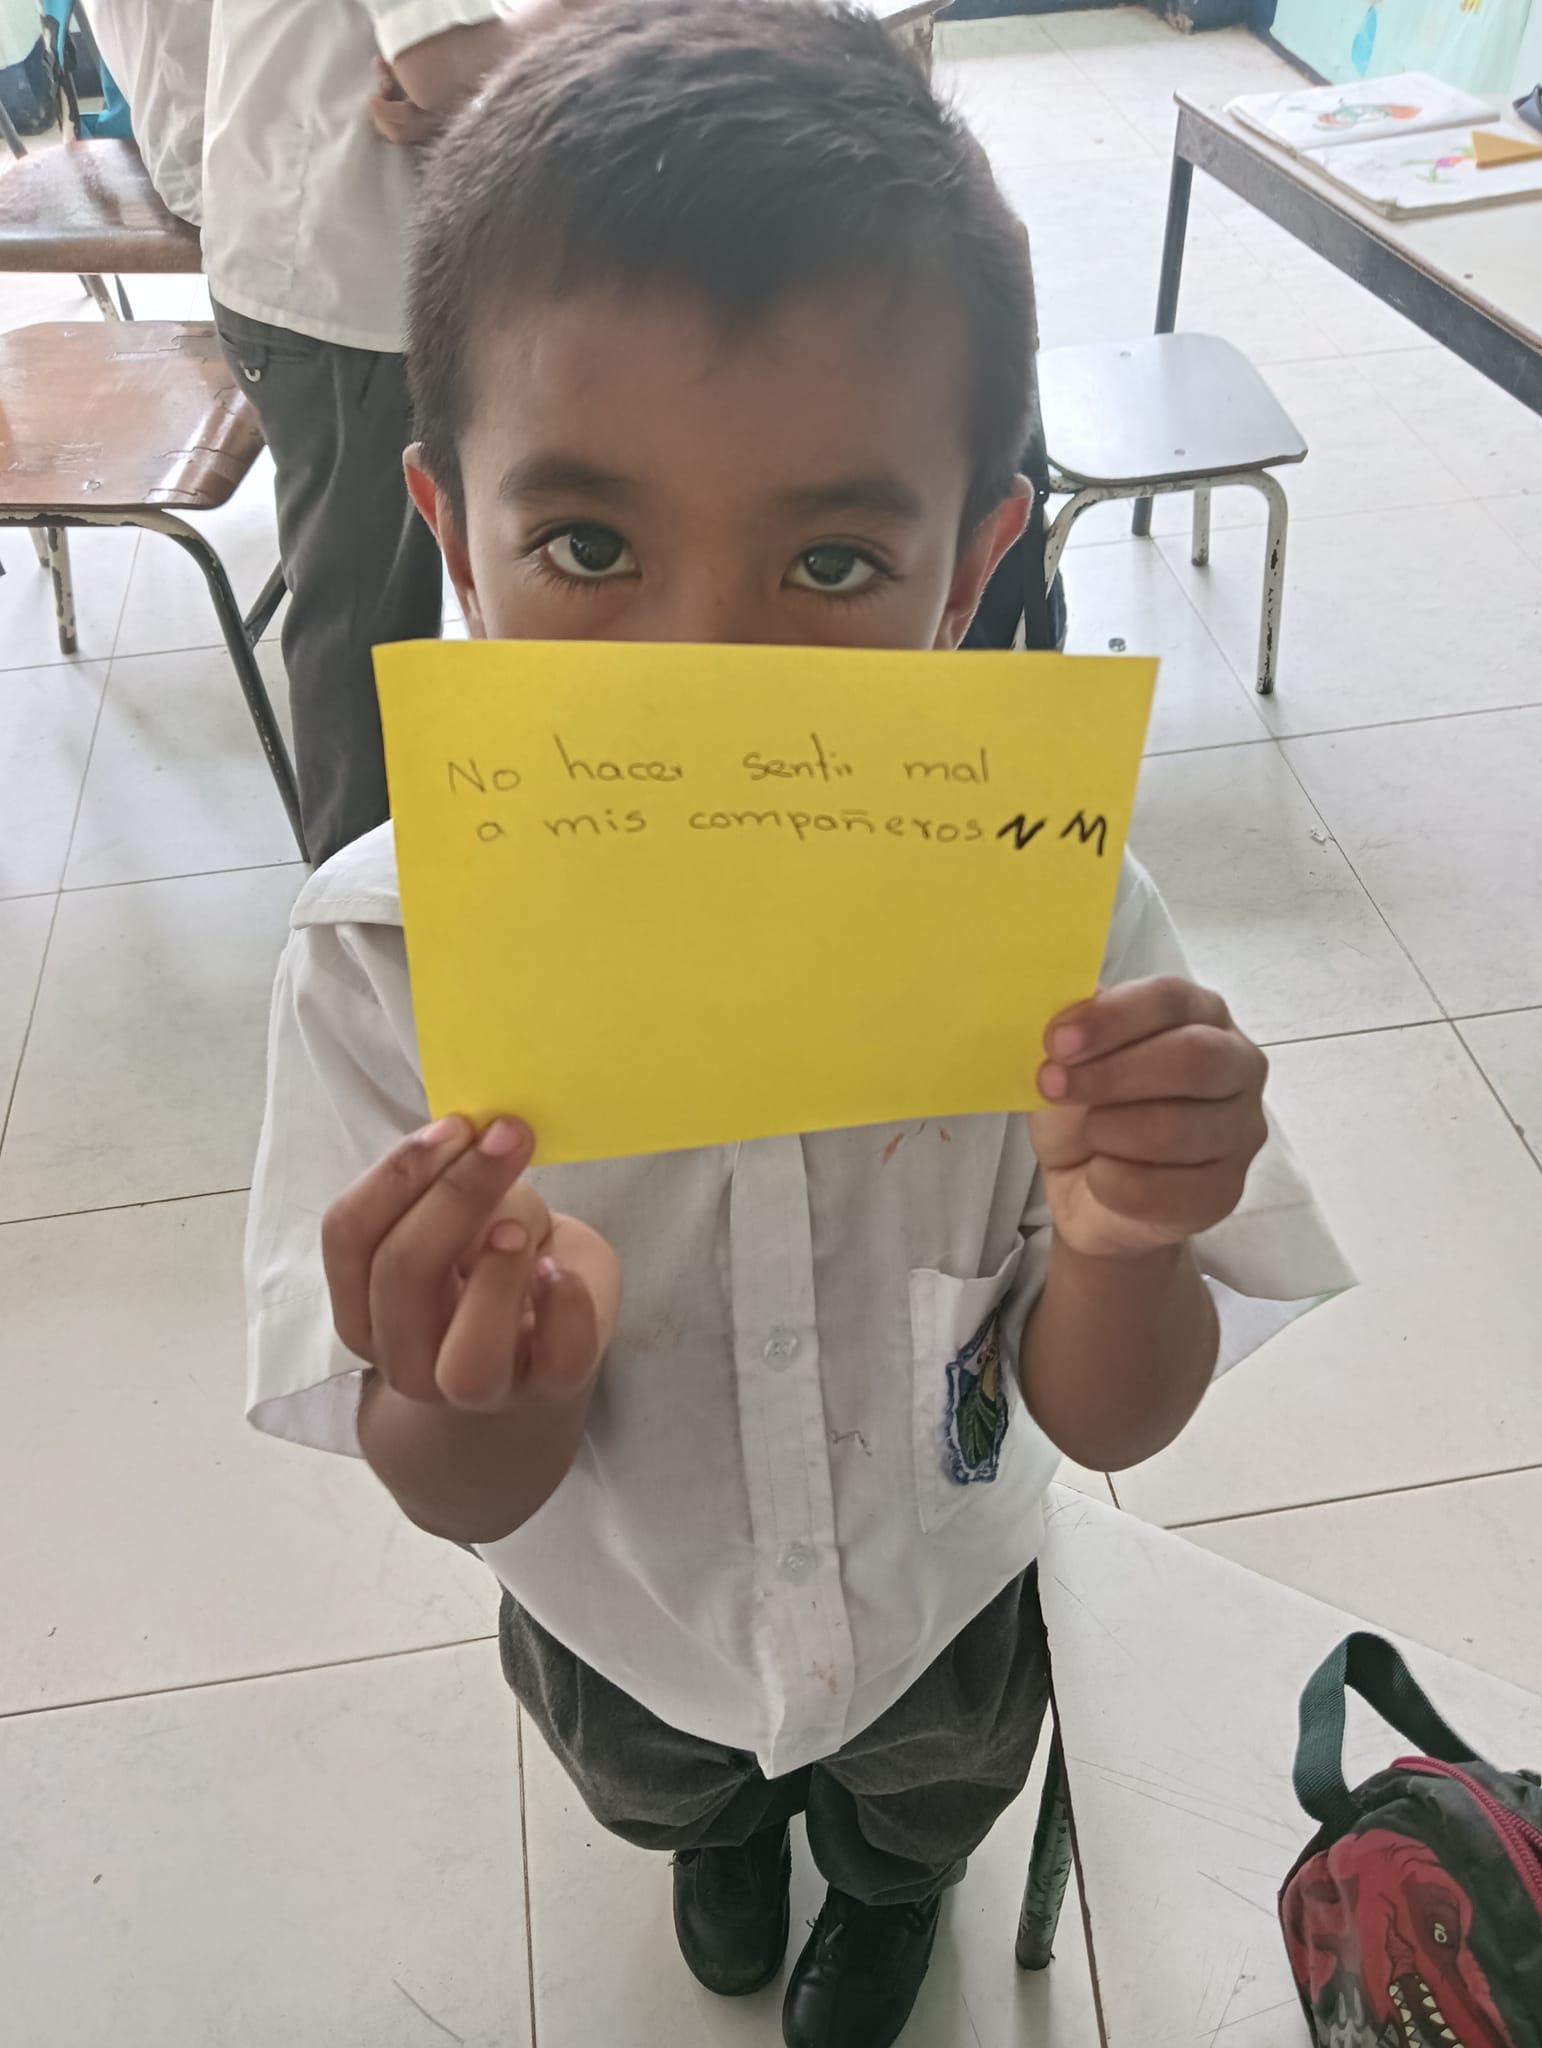 No hacer sentir mal
a mis compañeros N M